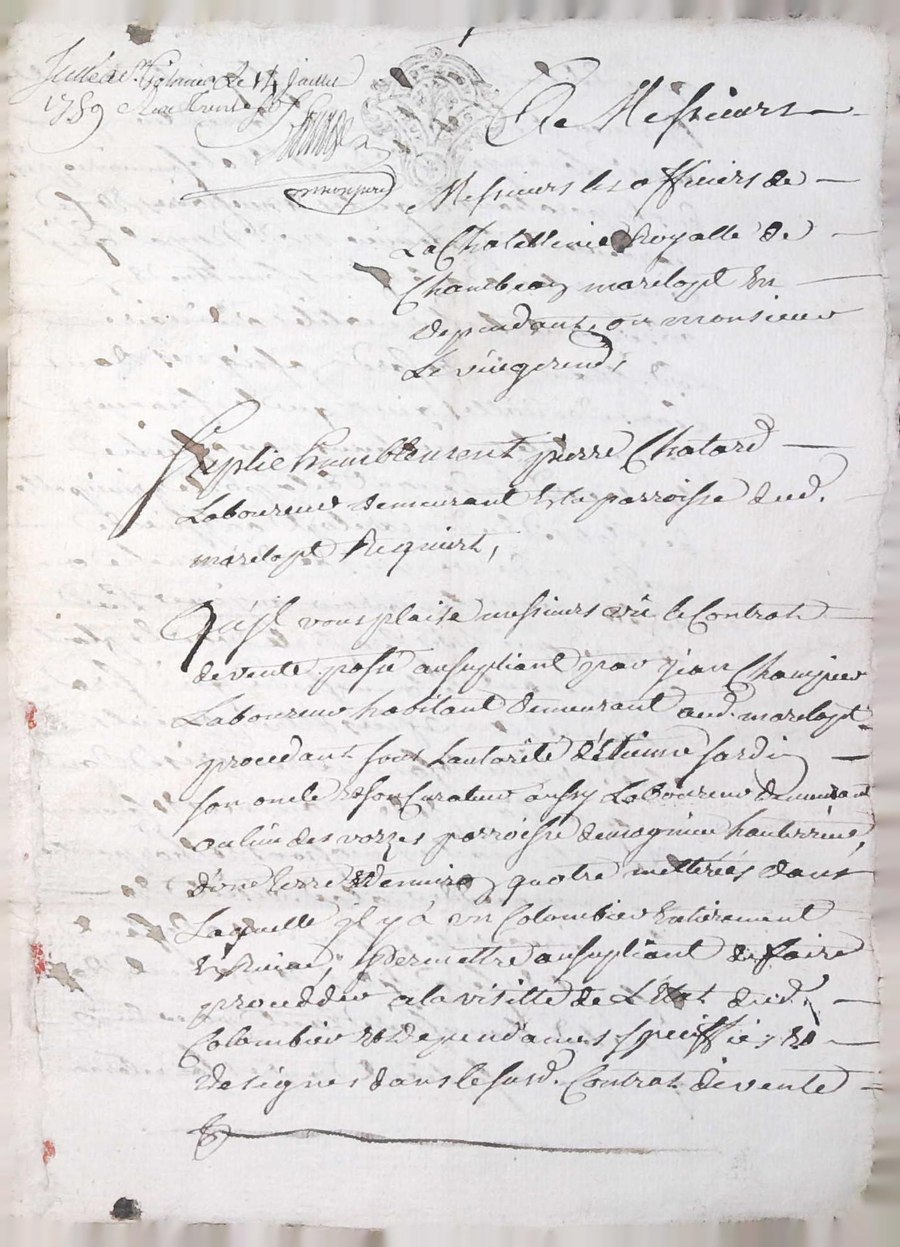 Le 14 Juillet
1759
A Messieurs
Messieurs les officiers de
La Chatellenie Royalle de
Chambeon marclopt En
dependant, ou monsieur
Le viugerend,
Suplie humblement pierre Chatard
Laboureur demeurant En la parroisse dud.
marclopt Requiert,
Qu'jl vous plaise messieurs vû le Contrat
de vente passé au supliant par jean
Laboureur habitant demeurant aud. marclopt
procedant sous L'autorité d'Etienne jardin
son oncle et son Curateur aussy Laboureur demeurant
au lieu des parroisse de
d'une terre Et quatre metterées dans
Laquelle jl y à un Colombier Entierement
En Ruine, Permettre au supliant de faire
procedder a la visitte de L'Etat dud.
Colombier Et dependances speciffiez Et
designes dans le susd. Contrat de vente